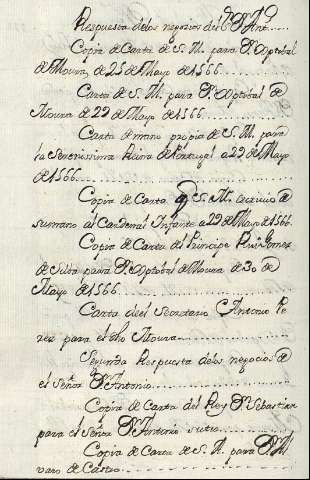 Respuesta delos negocios del Sr. D. Anto.
Copia de Carta de S. M. para D. Xptobal
de Moura, de 25 de Mayo de 1566.......
Carta de S. M. para D. Xptobal de
Moura de 29 de Mayo de 1566..........
Carta de mano propia de S. M. para
la Serenissima Reina de Portugal a 29 de Mayo
de 1566.............................
Copia de Carta q S. M. escrivio de
su mano al Cardenal Infante a 29 de Mayo de 1566.
Copia de Carta del Principe Ruigomez
de Silva para D. Xptobal de Moura de 30 de
Mayo de 1566.......................
Carta del Secretario Antonio Pe
rez para el dho Moura................
Segunda Respuesta delos negocios de
el Señor D. Antonio..................
Copia de Carta del Rey D. Sebastian
para el Señor D. Antonio su tio........
Copia de Carta de S. A. para D. Al
varo de Castro.......................